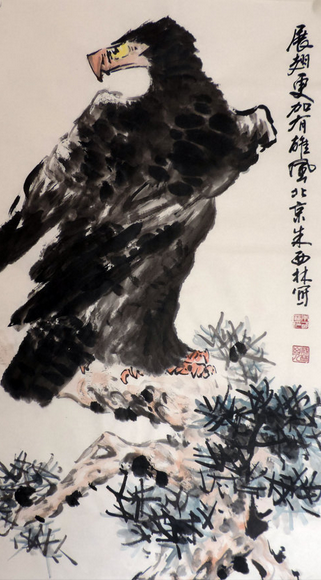 展翅更加有雄风北京朱西林写